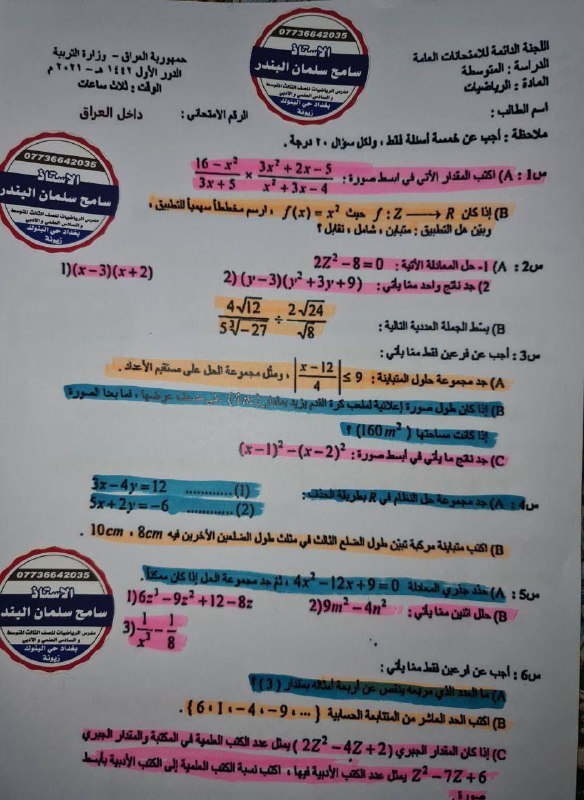 اللجنة الدائمة للامتحانات العامة
الدراسة : المتوسطة
المادة : الرياضيات
اسم الطالب :
جمهورية العراق - وزارة التربية
الدور الأول ١٤٤٢ هـ - ٢٠٢١ م
الوقت : ثلاث ساعات
الرقم الامتحاني : داخل العراق
07736642035
الاستاذ
سامح سلمان البندر
مدرس الرياضيات للصف الثالث المتوسط
و السادس العلمي و الادبي
بغداد حي البنوك
زيونة
ملاحظة : أجب عن خمسة أسئلة فقط ، ولكل سؤال ٢٠ درجة .
07736642035
الاستاذ
سامح سلمان البندر
مدرس الرياضيات للصف الثالث المتوسط
و السادس العلمي و الادبي
بغداد حي البنوك
زيونة
س1 : A) اكتب المقدار الآتي في ابسط صورة : (16 − x²)/(3x + 5) × (3x² + 2x − 5)/(x² + 3x − 4)
B) إذا كان f : Z ⟶ R حيث f(x) = x² ، ارسم مخططاً سهمياً للتطبيق ،
وبيّن هل التطبيق : متباين ، شامل ، تقابل ؟
س2 : A) 1- حل المعادلة الآتية : 2Z² − 8 = 0
2) جد ناتج واحد مما يأتي : 1) (x − 3)(x + 2) 2) (y − 3)(y² + 3y + 9)
B) بسّط الجملة العددية التالية : 4√12 / 5∛−27 ÷ 2√24 / √8
س3 : أجب عن فرعين فقط مما يأتي :
A) جد مجموعة حلول المتباينة : |(x − 12)/4| ≤ 9 ، ومثّل مجموعة الحل على مستقيم الأعداد .
B) إذا كان طول صورة إعلانية لملعب كرة القدم يزيد بمقدار عرضها ، فما بعدا الصورة
إذا كانت مساحتها (160 m²) ؟
C) جد ناتج ما يأتي في ابسط صورة : (x − 1)² − (x − 2)²
س4 : A) جد مجموعة حل النظام في R بطريقة الحذف :
3x − 4y = 12 ............ (1)
5x + 2y = −6 ............ (2)
B) اكتب متباينة مركبة تبيّن طول الضلع الثالث في مثلث طول الضلعين الآخرين فيه 10cm ، 8cm .
07736642035
الاستاذ
سامح سلمان البند
مدرس الرياضيات للصف الثالث المتوسط
و السادس العلمي و الادبي
بغداد حي البنوك
زيونة
س5 : A) حدّد جذري المعادلة 4x² − 12x + 9 = 0 ، ثم جد مجموعة الحل إذا كان ممكناً .
B) حلل اثنين مما يأتي : 1) 6z³ − 9z² + 12 − 8z 2) 9m² − 4n²
3) 1/x³ − 1/8
س6 : أجب عن فرعين فقط مما يأتي :
A) ما العدد الذي مربعه ينقص عن أربعة أمثاله بمقدار (3) ؟
B) اكتب الحد العاشر من المتتابعة الحسابية {6 ، 1 ، −4 ، −9 ، ...} .
C) إذا كان المقدار الجبري (2Z² − 4Z + 2) يمثل عدد الكتب العلمية في المكتبة والمقدار الجبري
Z² − 7Z + 6 يمثل عدد الكتب الأدبية فيها ، اكتب نسبة الكتب العلمية إلى الكتب الأدبية بأبسط
صورة